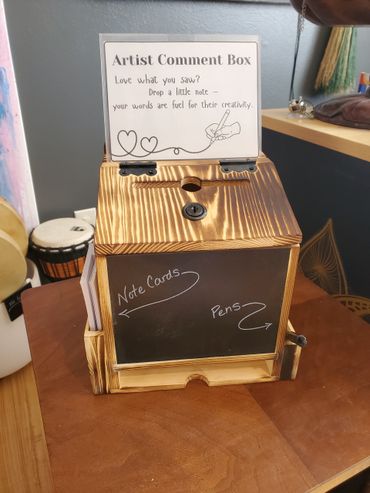 Artist Comment Box
Love what you saw?
Drop a little note –
your words are fuel for their creativity.
Note Cards
Pens